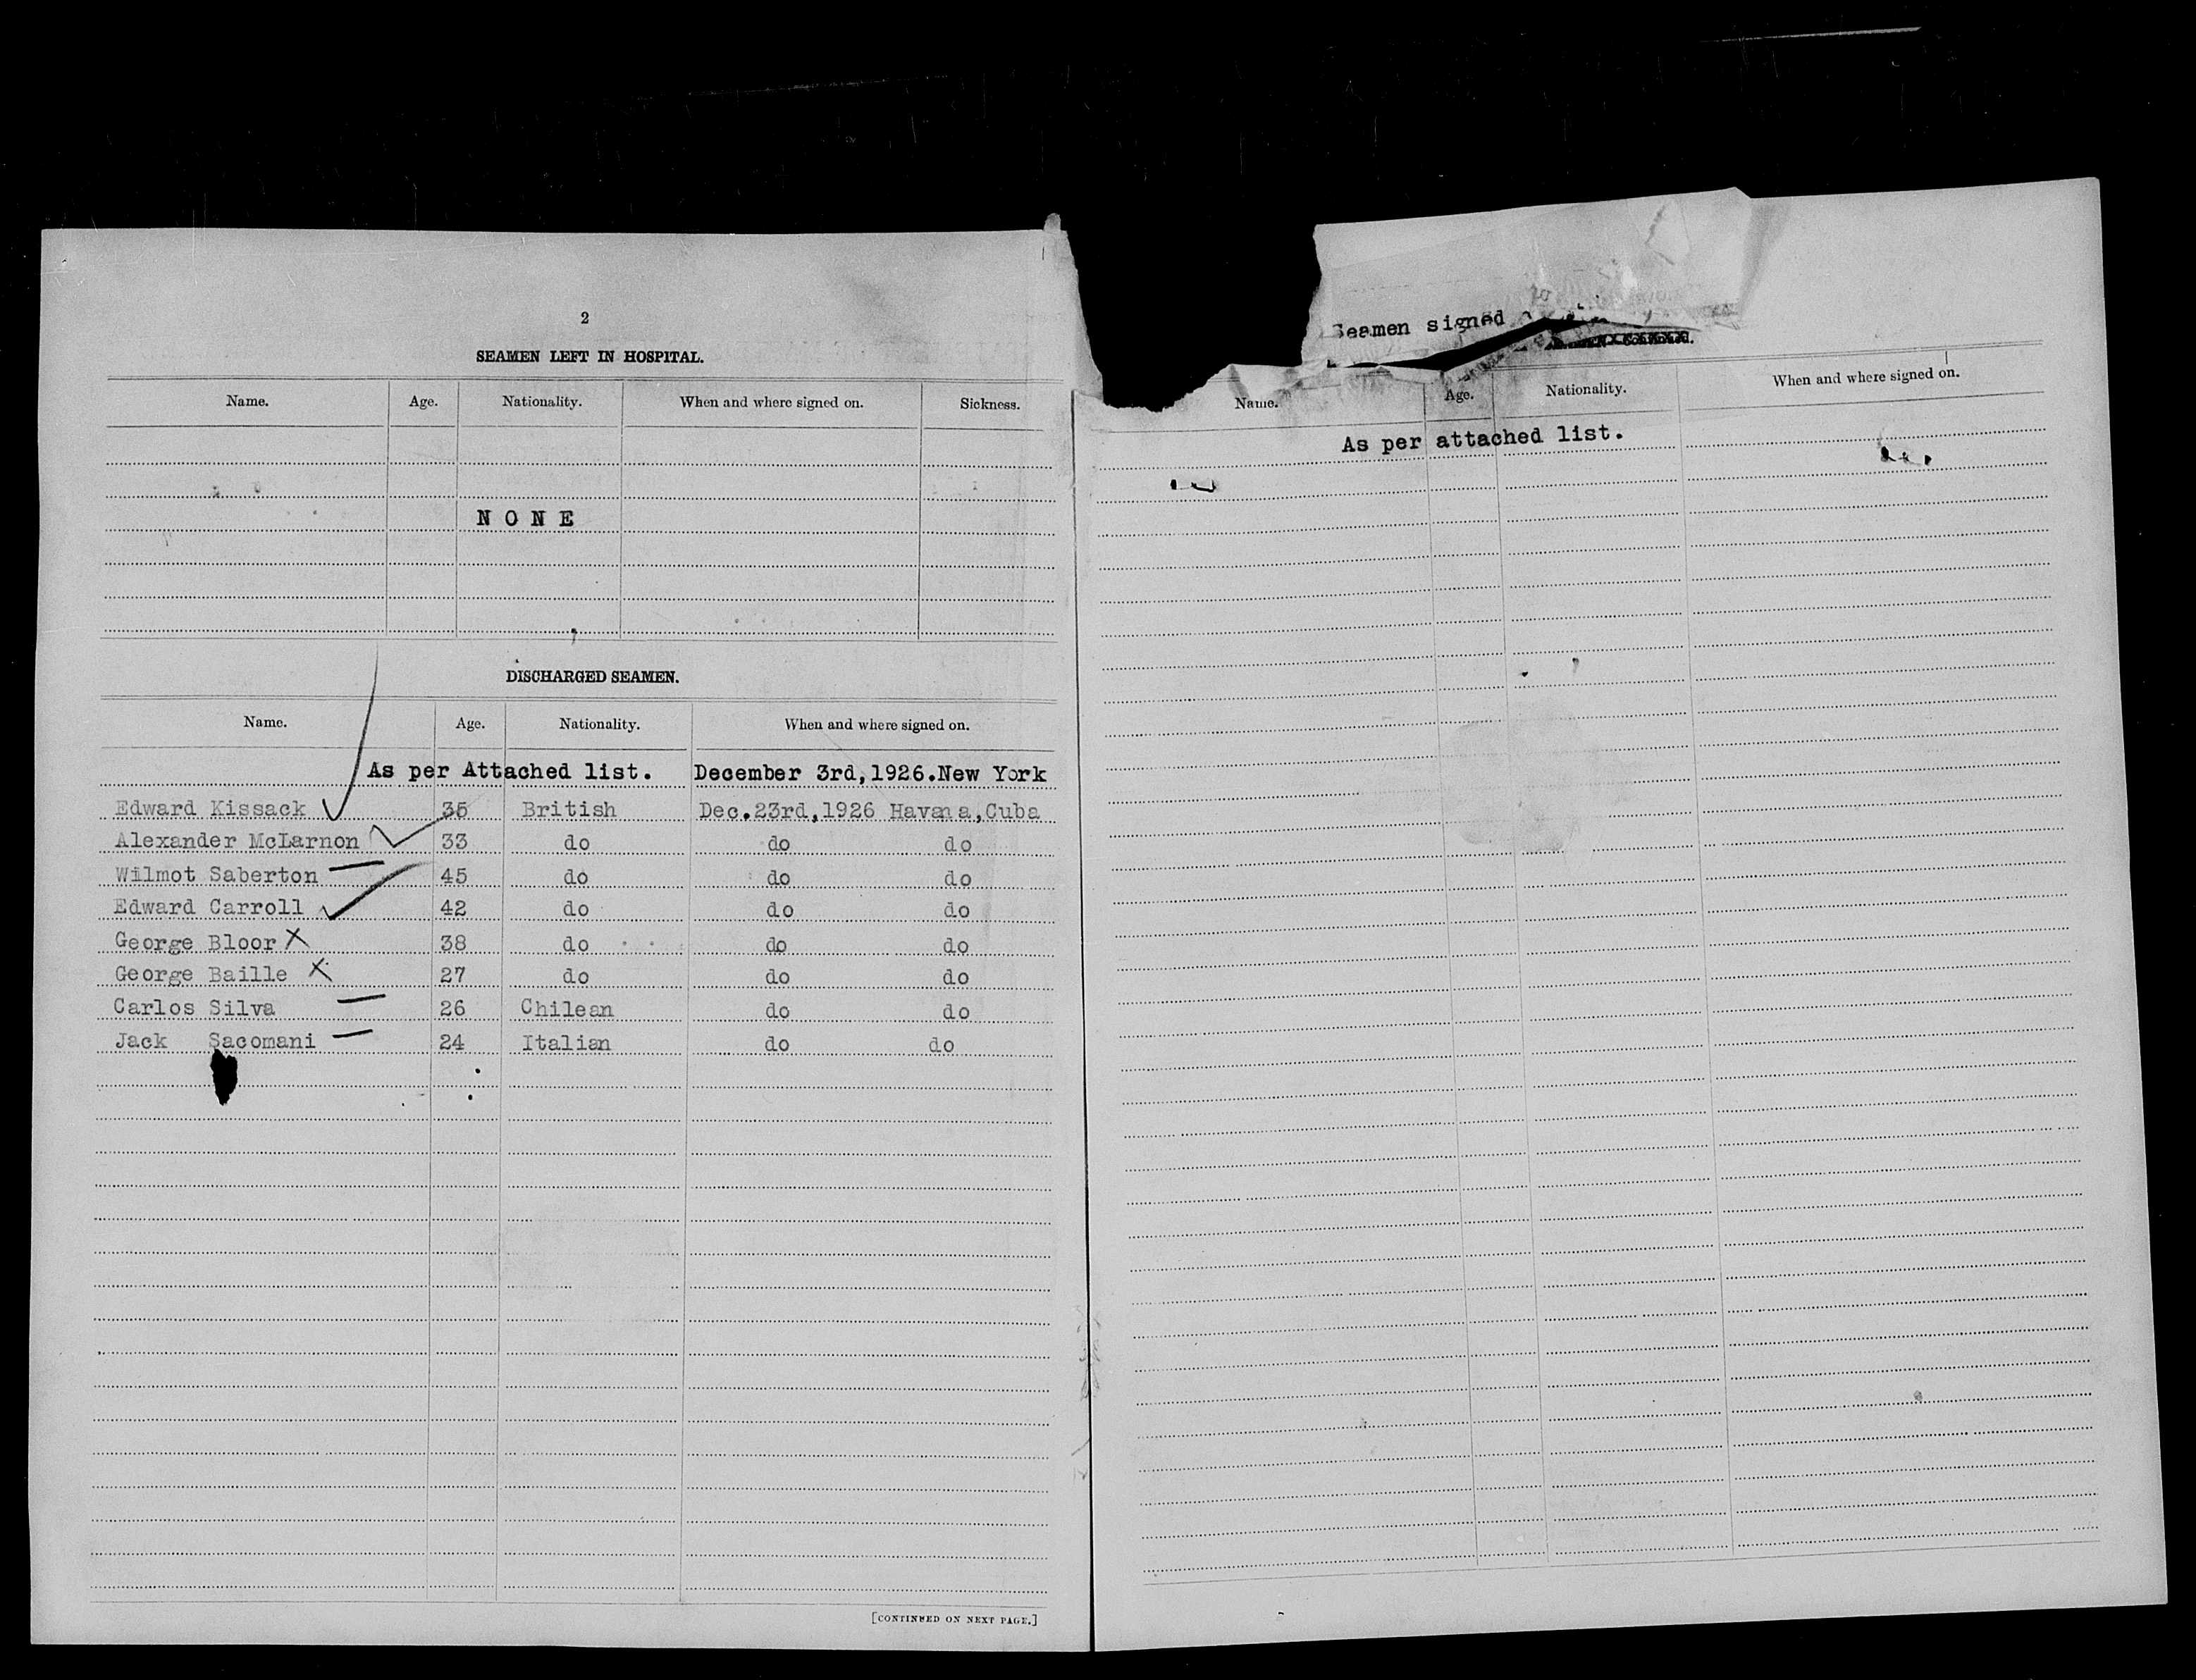 2
SEAMEN LEFT IN HOSPITAL.
Name. Age. Nationality. When and where signed on. Sickness.
NONE
DISCHARGED SEAMEN.
Name. Age. Nationality. When and where signed on.
As per Attached list. December 3rd,1926.New York
Edward Kissack 35 British Dec.23rd,1926 Havana,Cuba
Alexander McLarnon 33 do do do
Wilmot Saberton 45 do do do
Edward Carroll 42 do do do
George Bloor X 38 do do do
George Baille X 27 do do do
Carlos Silva 26 Chilean do do
Jack Sacomani 24 Italian do do
[CONTINUED ON NEXT PAGE.]
Seamen signed
Name. Age. Nationality. When and where signed on.
As per attached list.